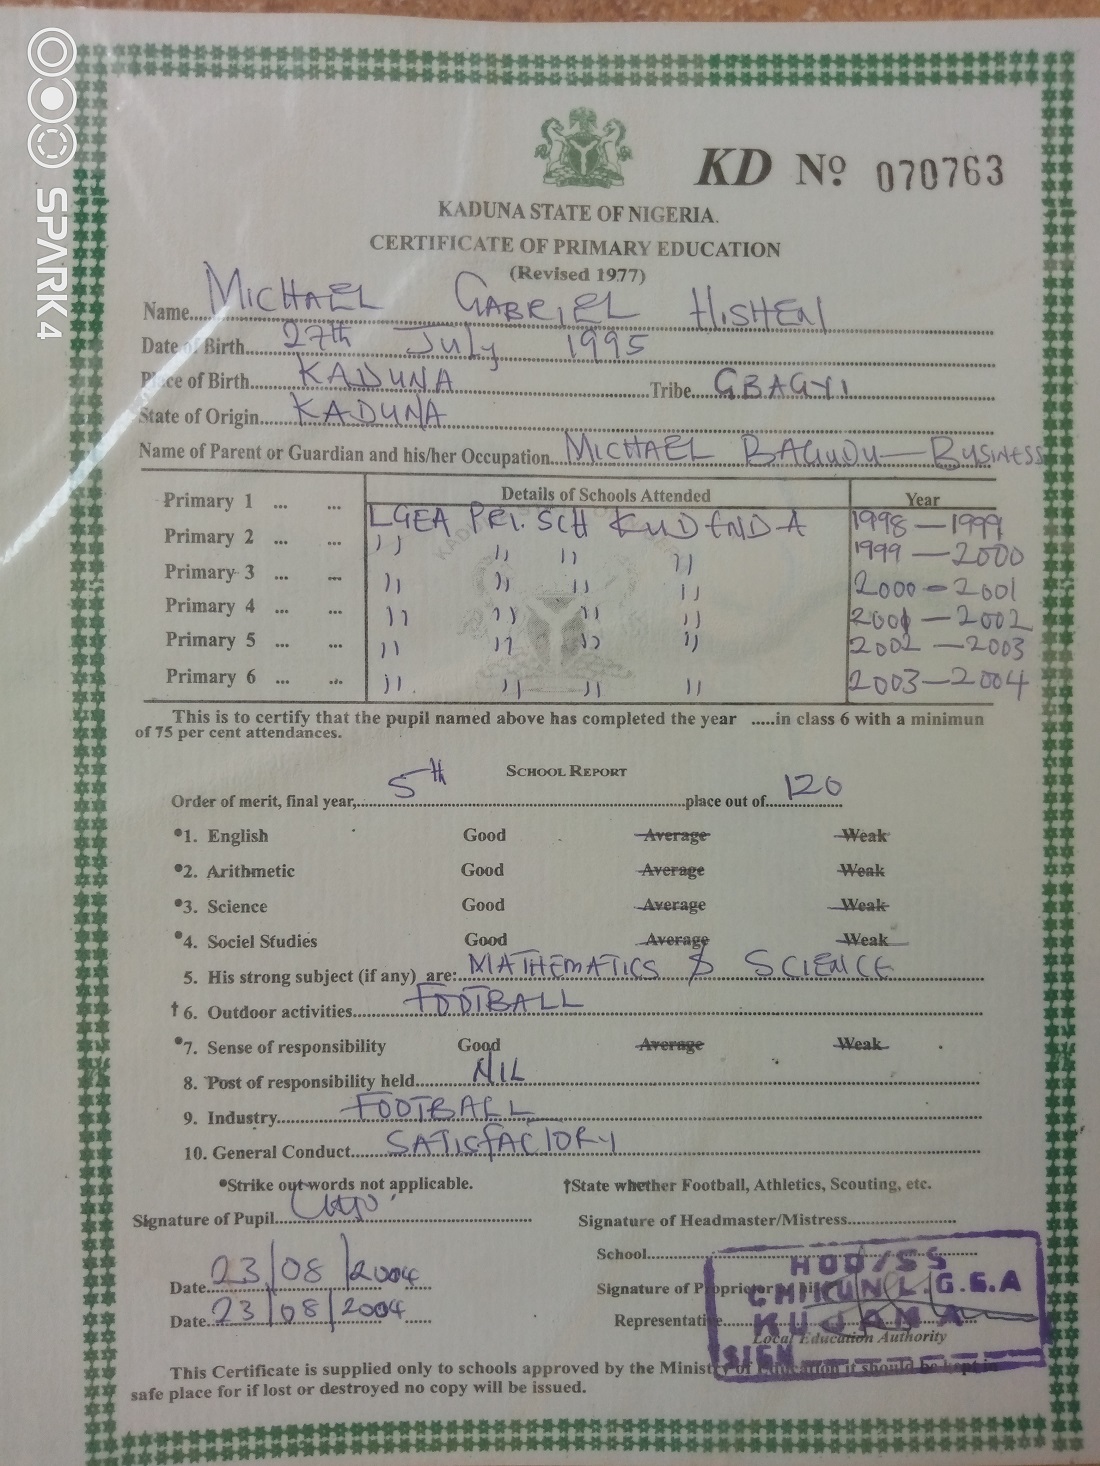 SPARK 4
KD No 070763
KADUNA STATE OF NIGERIA.
CERTIFICATE OF PRIMARY EDUCATION
(Revised 1977)
Name... MICHAEL GABRIEL HISHENI
Date of Birth... 27th July 1995
Place of Birth... KADUNA Tribe... GBAGYI
State of Origin... KADUNA
Name of Parent or Guardian and his/her Occupation... MICHAEL BAGUDU — BUSINESS
Details of Schools Attended Year
Primary 1 ... ... LGEA PRI. SCH KUDENDA 1998 — 1999
Primary 2 ... ... ,, ,, ,, ,, 1999 — 2000
Primary 3 ... ... ,, ,, ,, ,, 2000 - 2001
Primary 4 ... ... ,, ,, ,, ,, 2001 — 2002
Primary 5 ... ... ,, ,, ,, ,, 2002 — 2003
Primary 6 ... ... ,, ,, ,, ,, 2003 — 2004
This is to certify that the pupil named above has completed the year .....in class 6 with a minimun
of 75 per cent attendances.
SCHOOL REPORT
Order of merit, final year,... 5th ...place out of... 120
*1. English Good Average Weak
*2. Arithmetic Good Average Weak
*3. Science Good Average Weak
*4. Sociel Studies Good Average Weak
5. His strong subject (if any) are:... MATHEMATICS & SCIENCE
†6. Outdoor activities... FOOTBALL
*7. Sense of responsibility Good Average Weak
8. Post of responsibility held... NIL
9. Industry... FOOTBALL
10. General Conduct... SATISFACTORY
*Strike out words not applicable. †State whether Football, Athletics, Scouting, etc.
Signature of Pupil... Signature of Headmaster/Mistress...
School...
Date... 23/08/2004 Signature of Proprietor
Date... 23/08/2004 Representative...
Local Education Authority
HOD/SS
CHIKUN L.G.E.A
KUJAMA
SIGN
This Certificate is supplied only to schools approved by the Ministry of Education it should be kept in
safe place for if lost or destroyed no copy will be issued.